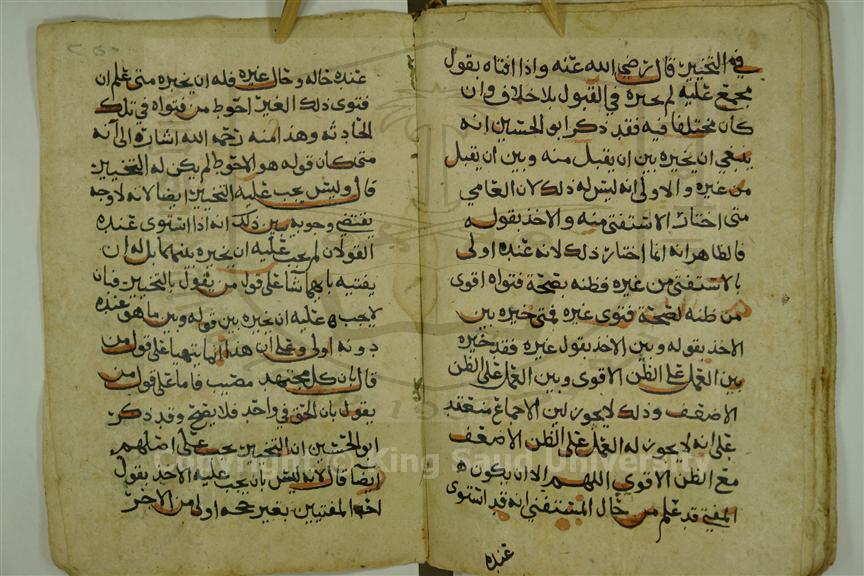 في التخيير قال رضي الله عنه واذا افتاه بقول
مجمع عليه لم يخيره في القبول بلا خلاف وان
كان مختلفا فيه فقد ذكر ابو الحسين انه
ينبغي ان يخيره بين ان يقبل منه وبين ان يقبل
من غيره والاولى انه ليس له ذلك لان العامي
متى اختار الاستفتى منه والاخذ بقوله
فالظاهر انه انما اختار ذلك لانه عنده اولى
بالاستفتى من غيره وظنه بصحة فتواه اقوى
من ظنه لصحة فتوى غيره فمتى خيره بين
الاخذ بقوله وبين الاخذ بقول غيره فقد خيره
بين العمل على الظن الاقوى وبين العمل على الظن
الاضعف وذلك لا يجوز لان الاجماع منعقد
على انه لا يجوز له العمل على الظن الاضعف
مع الظن الاقوى اللهم الا ان يكون
المفتي قد علم من حال المستفتي انه قد استوى
عنده
عنده حاله وحال غيره فله ان يخيره متى علم ان
فتوى ذلك الغير احوط من فتواه في تلك
الحادثه وهذا منه رحمه الله اشاره الى انه
متى كان قوله هو الاحوط لم يكن له التخيير
قال وليس يجب عليه التخيير ايضا لانه لا وجه
يقتضي وجوبه يبين ذلك انه اذا استوى عنده
القولان لم يجب عليه ان يخيره بينهما بل له ان
يفتيه بايهما شا على قول من يقول بالتخيير فبان
لا يجب عليه ان يخيره بين قوله وبين ما هو عنده
دونه اولى وعلى ان هذا انما يتهيا على قول من
قال بان كل مجتهد مصيب فاما على قول من
يقول بان الحق في واحد فلا يصح وقد ذكر
ابو الحسين ان التخيير يجب على اصلهم
ايضا قال لانه ليس بان يجب عليه الاخذ بقول
احد المفتيين بغير حجه اولى من الاخر
Copyright © King Saud University